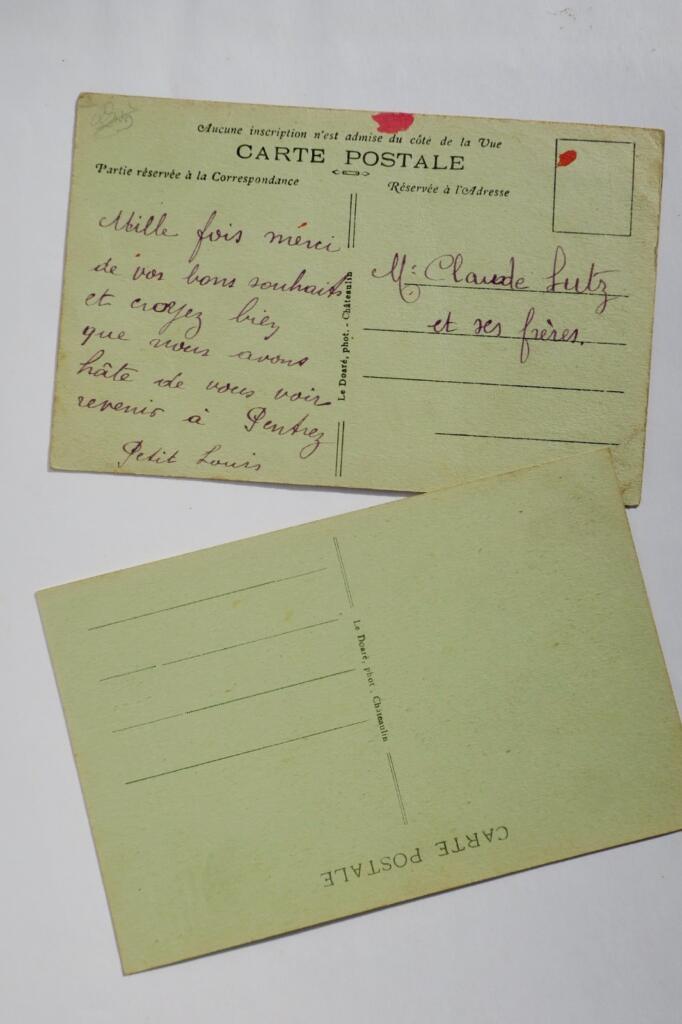 Aucune inscription n'est admise du côté de la Vue
CARTE POSTALE
Partie réservée à la Correspondance
Réservée à l'Adresse
Mille fois merci
de vos bons souhaits
et croyez bien
que nous avons
hâte de vous voir
revenir à Pentrez
Petit Louis
Le Doaré, phot. - Châteaulin
Mr Claude Lutz
et ses frères.
Le Doaré, phot. - Châteaulin
CARTE POSTALE